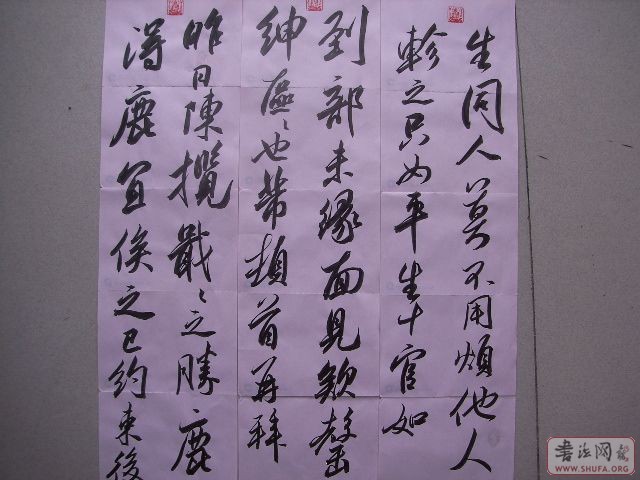 生同人莫不用煩他人
軫之只如平生十官如
到部未緣面見欽罄
紳區〻也芾頓首再拜
昨日陳攬戢〻之勝鹿
得鹿宜俟之已約束後
書法网
WWW.SHUFA.ORG